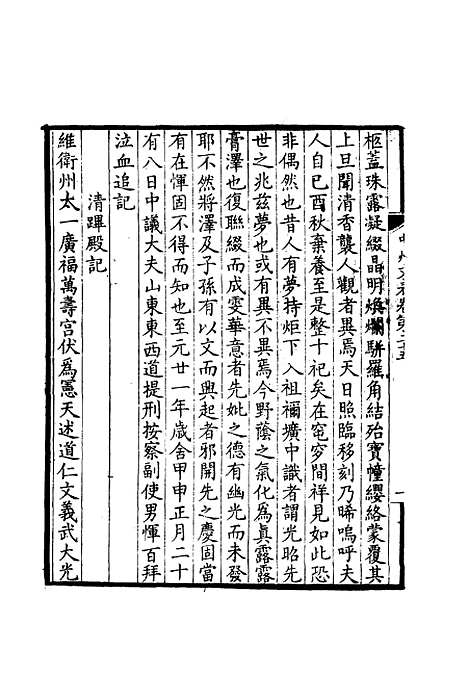 柩蓋珠露凝綴晶明煥爛駢羅角結殆寳幢纓絡蒙覆其
上旦聞清香襲人觀者異焉天日照臨移刻乃晞嗚呼夫
人自己酉秋棄養至是整十祀矣在窀穸間祥見如此恐
非偶然也昔人有夢持炬下入祖禰壙中識者謂光昭先
世之兆兹夢也或有異不異焉今野蔭之氣化為真露露
膏澤也復聯綴而成雯華意者先妣之德有幽光而未發
耶不然將澤及子孫有以文而興起者邪開先之慶固當
有在惲固不得而知也至元廿一年歲舍甲申正月二十
有八日中議大夫山東東西道提刑按察副使男惲百拜
泣血追記
清蹕殿記
維衛州太一廣福萬壽宫伏為憲天述道仁文義武大光
中州文表卷第二十五